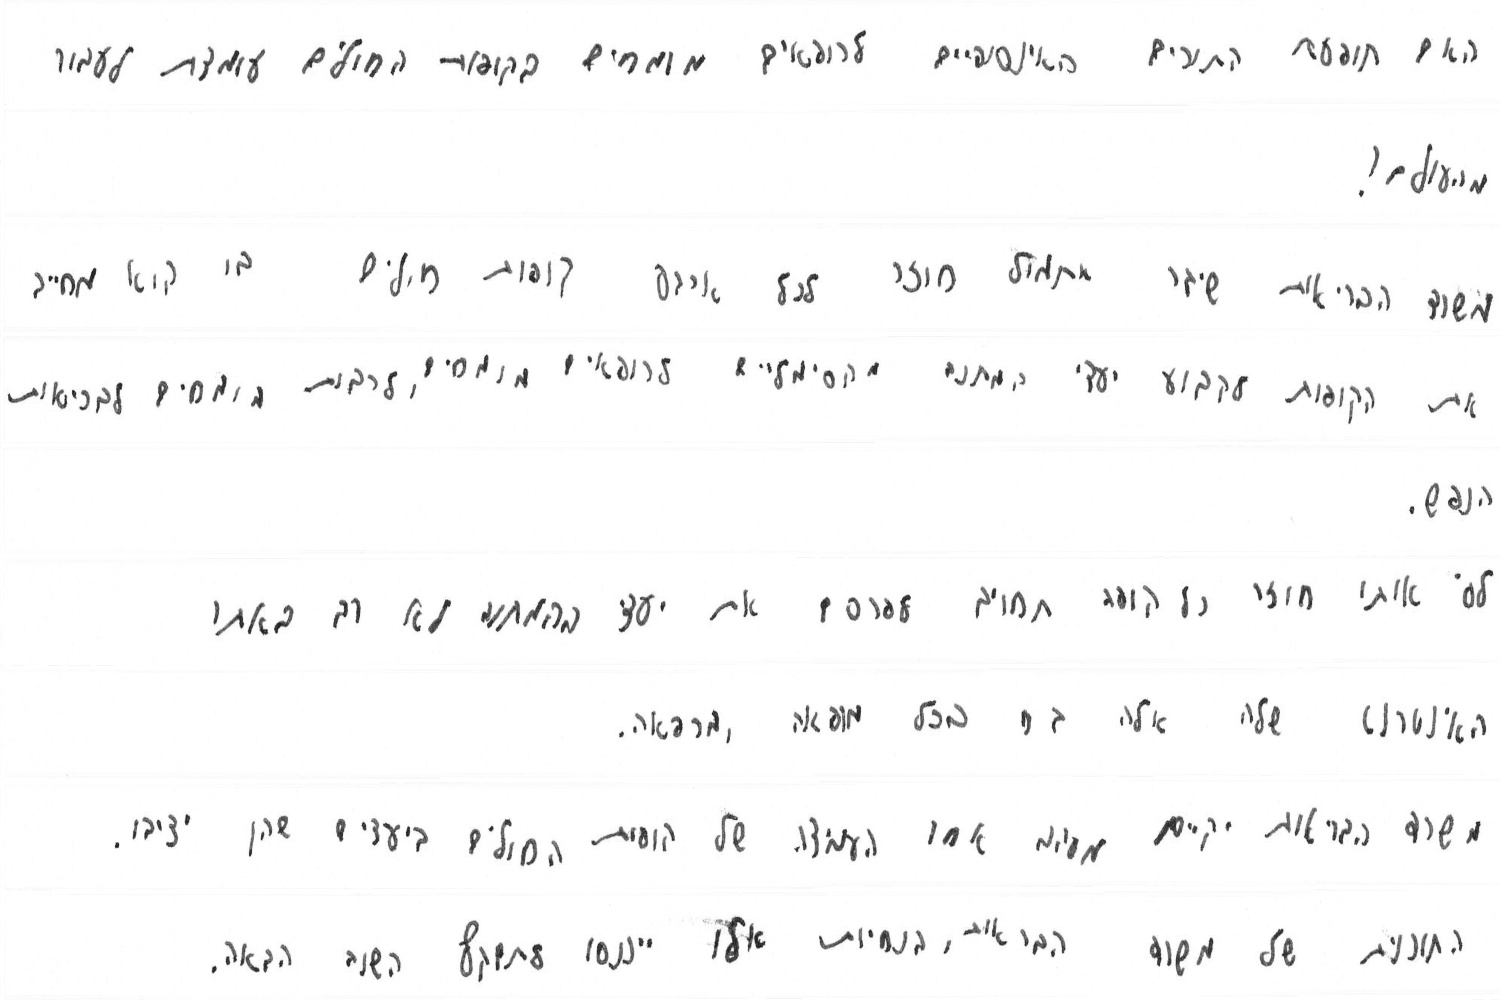 האם תופעת התורים האינסופיים לרופאים מומחים בקופות החולים עומדת לעבור
מהעולם?
משרד הבריאות שיגר אתמול חוזר לכל ארבע קופות חולים בו הוא מחייב
את הקופות לקבוע יעדי המתנה מקסימליים לרופאים מומחים, לרבות מומחים לבריאות
הנפש.
לפי אותו חוזר כל קופה תחויב לפרסם את יעדי ההמתנה לא רק באתר
האינטרנט שלה אלא גם בכל מרפאה ומרפאה.
משרד הבריאות יקיים מעקב אחר העמידה של קופות החולים ביעדים שהן יציבו.
התוכנית של משרד הבריאות, הנחיות אלו ייכנסו לתוקף השנה הבאה.